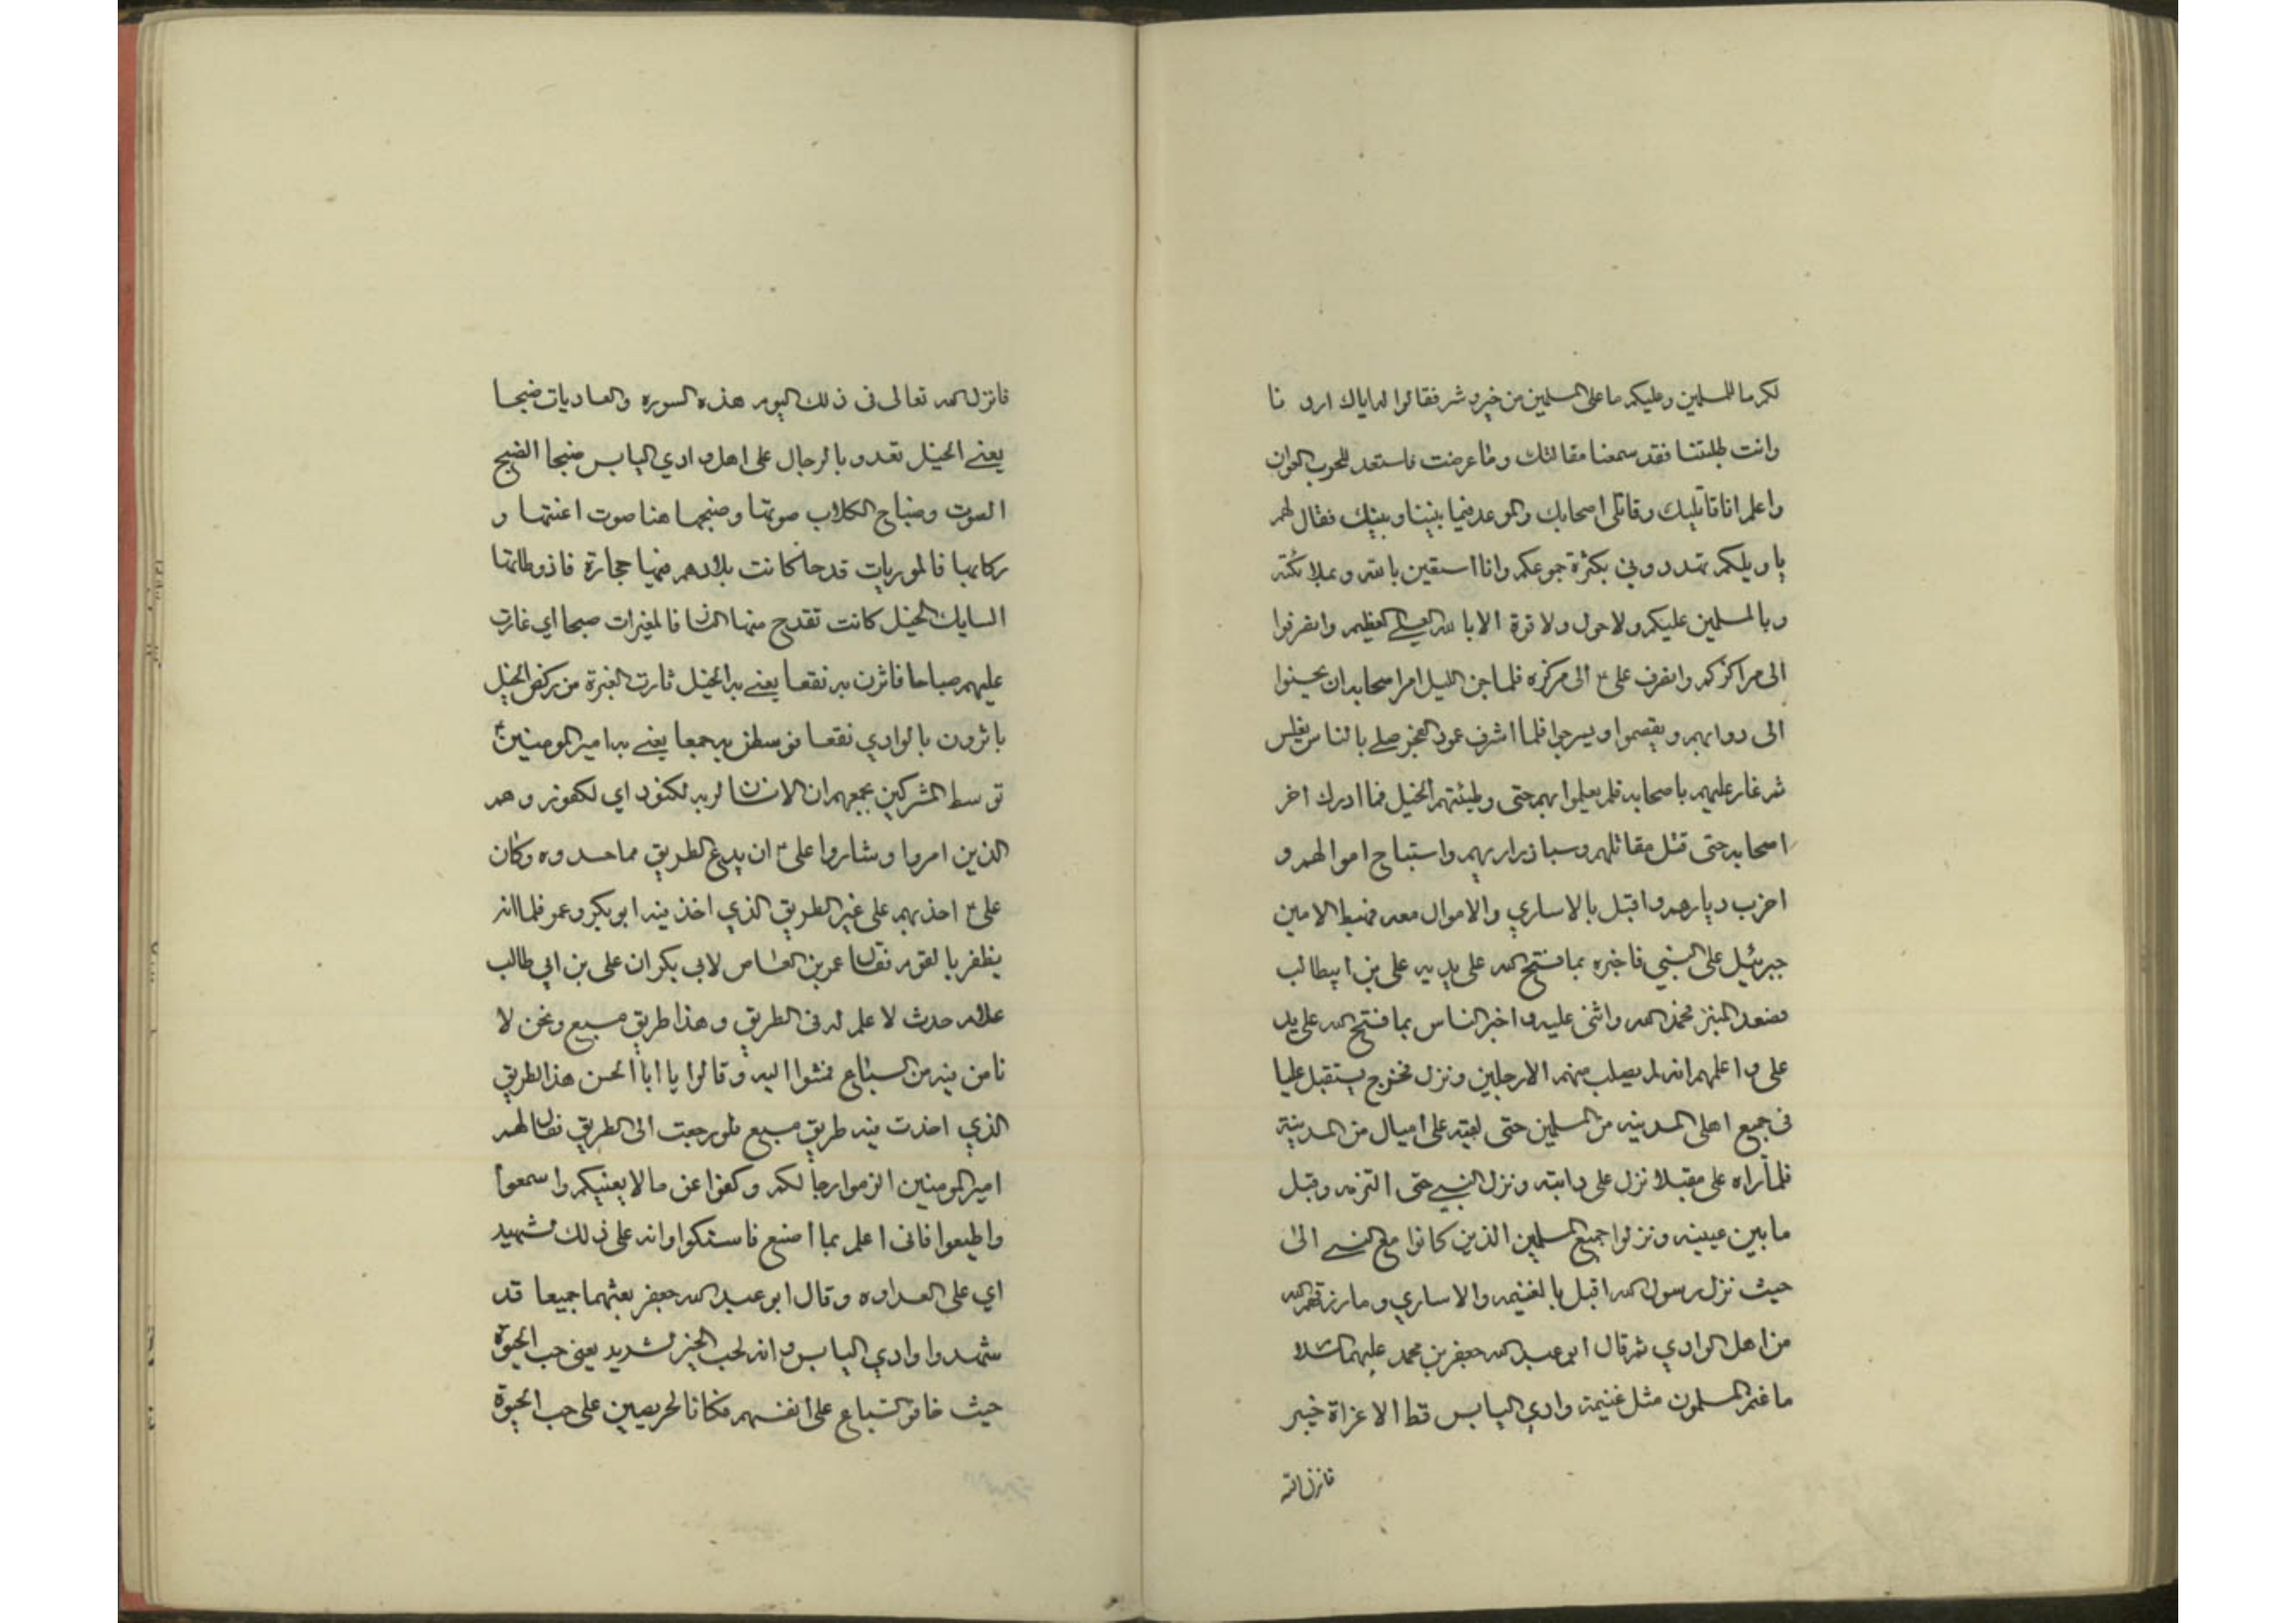 لكم ما للمسلمين وعليكم ما على المسلمين من خير وشر فقالوا له اياك اردنا
وانت طلبتنا فقد سمعنا مقالتك وما عرضت فاستعد للحرب العوان
واعلم انا قاتليك وقاتلى اصحابك والموعد فيما بيننا وبينك فقال لهم
يا ويلكم تهددوني بكثرة جموعكم وانا استعين بالله وملائكته
وبالمسلمين عليكم ولا حول ولا قوة الا بالله العلي العظيم وانصرفوا
الى مراكزكم وانصرف على ع الى مركزه فلما جن الليل امر اصحابه ان يحسنوا
الى دوابهم ويقصموا ويسرجوا فلما اشرف عمود الفجر صلى بالناس بغلس
ثم غار عليهم باصحابه فلم يعلموا بهم حتى وطئتهم الخيل فما ادرك اخر
اصحابه حتى قتل مقاتلهم وسبا ذراريهم واستباح اموالهم و
اخرب ديارهم واقبل بالاساري والاموال معه فهبط الامين
جبرئيل على النبي فاخبره بما فتح الله على يديه على بن ابيطالب
فصعد المنبر فحمد الله واثنى عليه واخبر الناس بما فتح الله على يد
على واعلمهم انه لم يصب منهم الا رجلين ونزل فخرج يستقبل عليا
فى جميع اهل المدينه من المسلمين حتى لقيه على اميال من المدينة
فلما راه على مقبلا نزل على دابته ونزل النبي حتى التزمه وقبل
ما بين عينيه ونزلوا جميع المسلمين الذين كانوا مع النبي الى
حيث نزل رسول الله اقبل بالغنيمه والاساري وما رزقهم الله
من اهل الوادي ثم قال ابو عبد الله جعفر بن محمد عليهما السلام
ما غنم المسلمون مثل غنيمة وادي اليابس قط الا غزاة خيبر
فانزل الله
فانزل الله تعالى فى ذلك اليوم هذه السوره والعاديات ضبحا
يعني الخيل تعدو بالرجال على اهل وادي اليابس ضبحا الضبح
الصوت وضباح الكلاب صوتها وضبحها هنا صوت اعنتها و
ركابها فالموريات قدحا كانت بلادهم فيها حجارة فاذ وطائها
السايك الخيل كانت تقدح منها النار فالمغيرات صبحا اي غارت
عليهم صباحا فاثرن به نقعا يعني به الخيل ثارت الغبرة من ركض الخيل
باثرون بالوادي نقعا فوسطن به جمعا يعني به امير المومنين ع
توسط المشركين بجمعهم ان الانسان لربه لكنود اي لكفور وهم
الذين امروا وشاروا على ع ان يدع الطريق مما حسدوه وكان
على ع اخذ بهم على غير الطريق الذي اخذ فيه ابو بكر وعمر فلما انه
يظفر بالقوم فقال عمر بن العاص لابي بكر ان على بن ابي طالب
غلام حدث لا علم له فى الطريق وهذا طريق مسبع ونحن لا
نامن فيه من السباع فمشوا اليه وقالوا يا ابا الحسن هذا الطريق
الذي اخذت فيه طريق مسبع فلو رجعت الى الطريق فقال لهم
امير المومنين الزموا رحالكم وكفوا عن ما لا يعنيكم واسمعوا
واطيعوا فانى اعلم بما اصنع فاسكتوا وانه على ذلك لشهيد
اي على العداوه وقال ابو عبد الله جعفر بعثهما جميعا قد
شهدوا وادي اليابس وانه لحب الخير لشديد يعنى حب الحيوة
حيث خافو السباع على انفسهم فكانا لحريصين على حب الحيوة